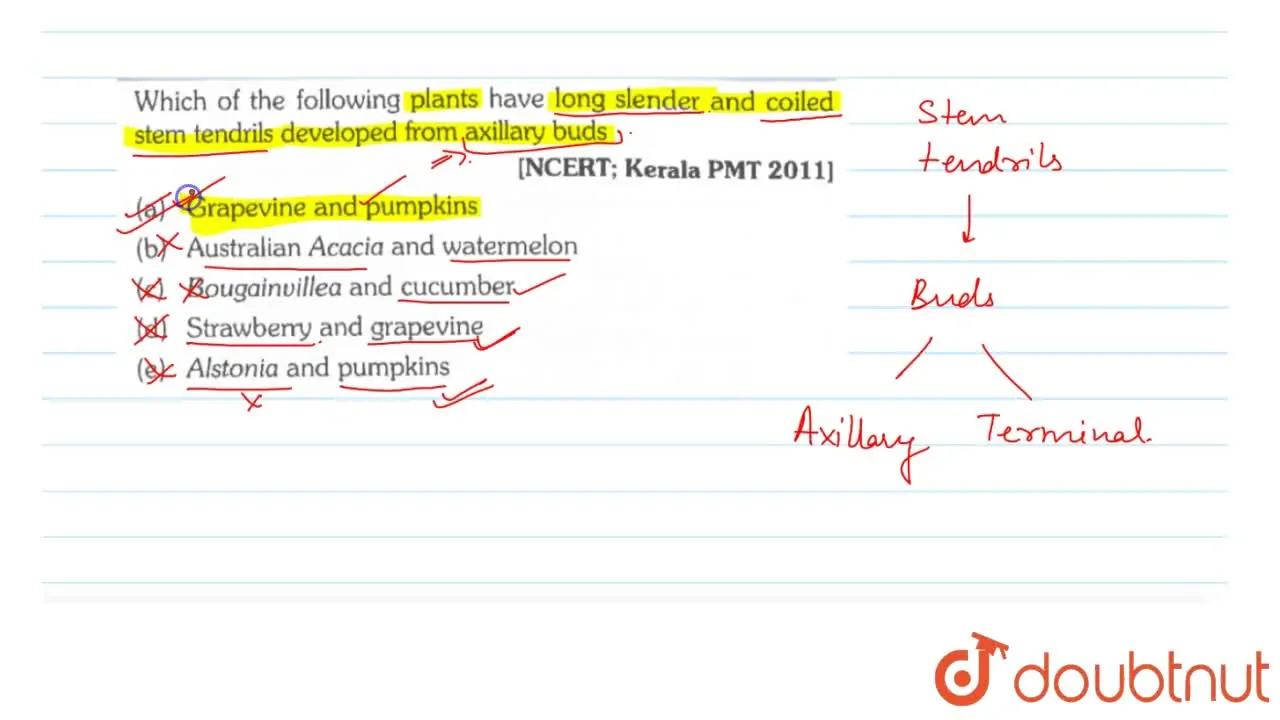 Which of the following plants have long slender and coiled
stem tendrils developed from axillary buds
[NCERT; Kerala PMT 2011]
(a) Grapevine and pumpkins
(b) Australian Acacia and watermelon
(c) Bougainvillea and cucumber
(d) Strawberry and grapevine
(e) Alstonia and pumpkins
Stem
tendrils
Buds
Axillary Terminal.
doubtnut